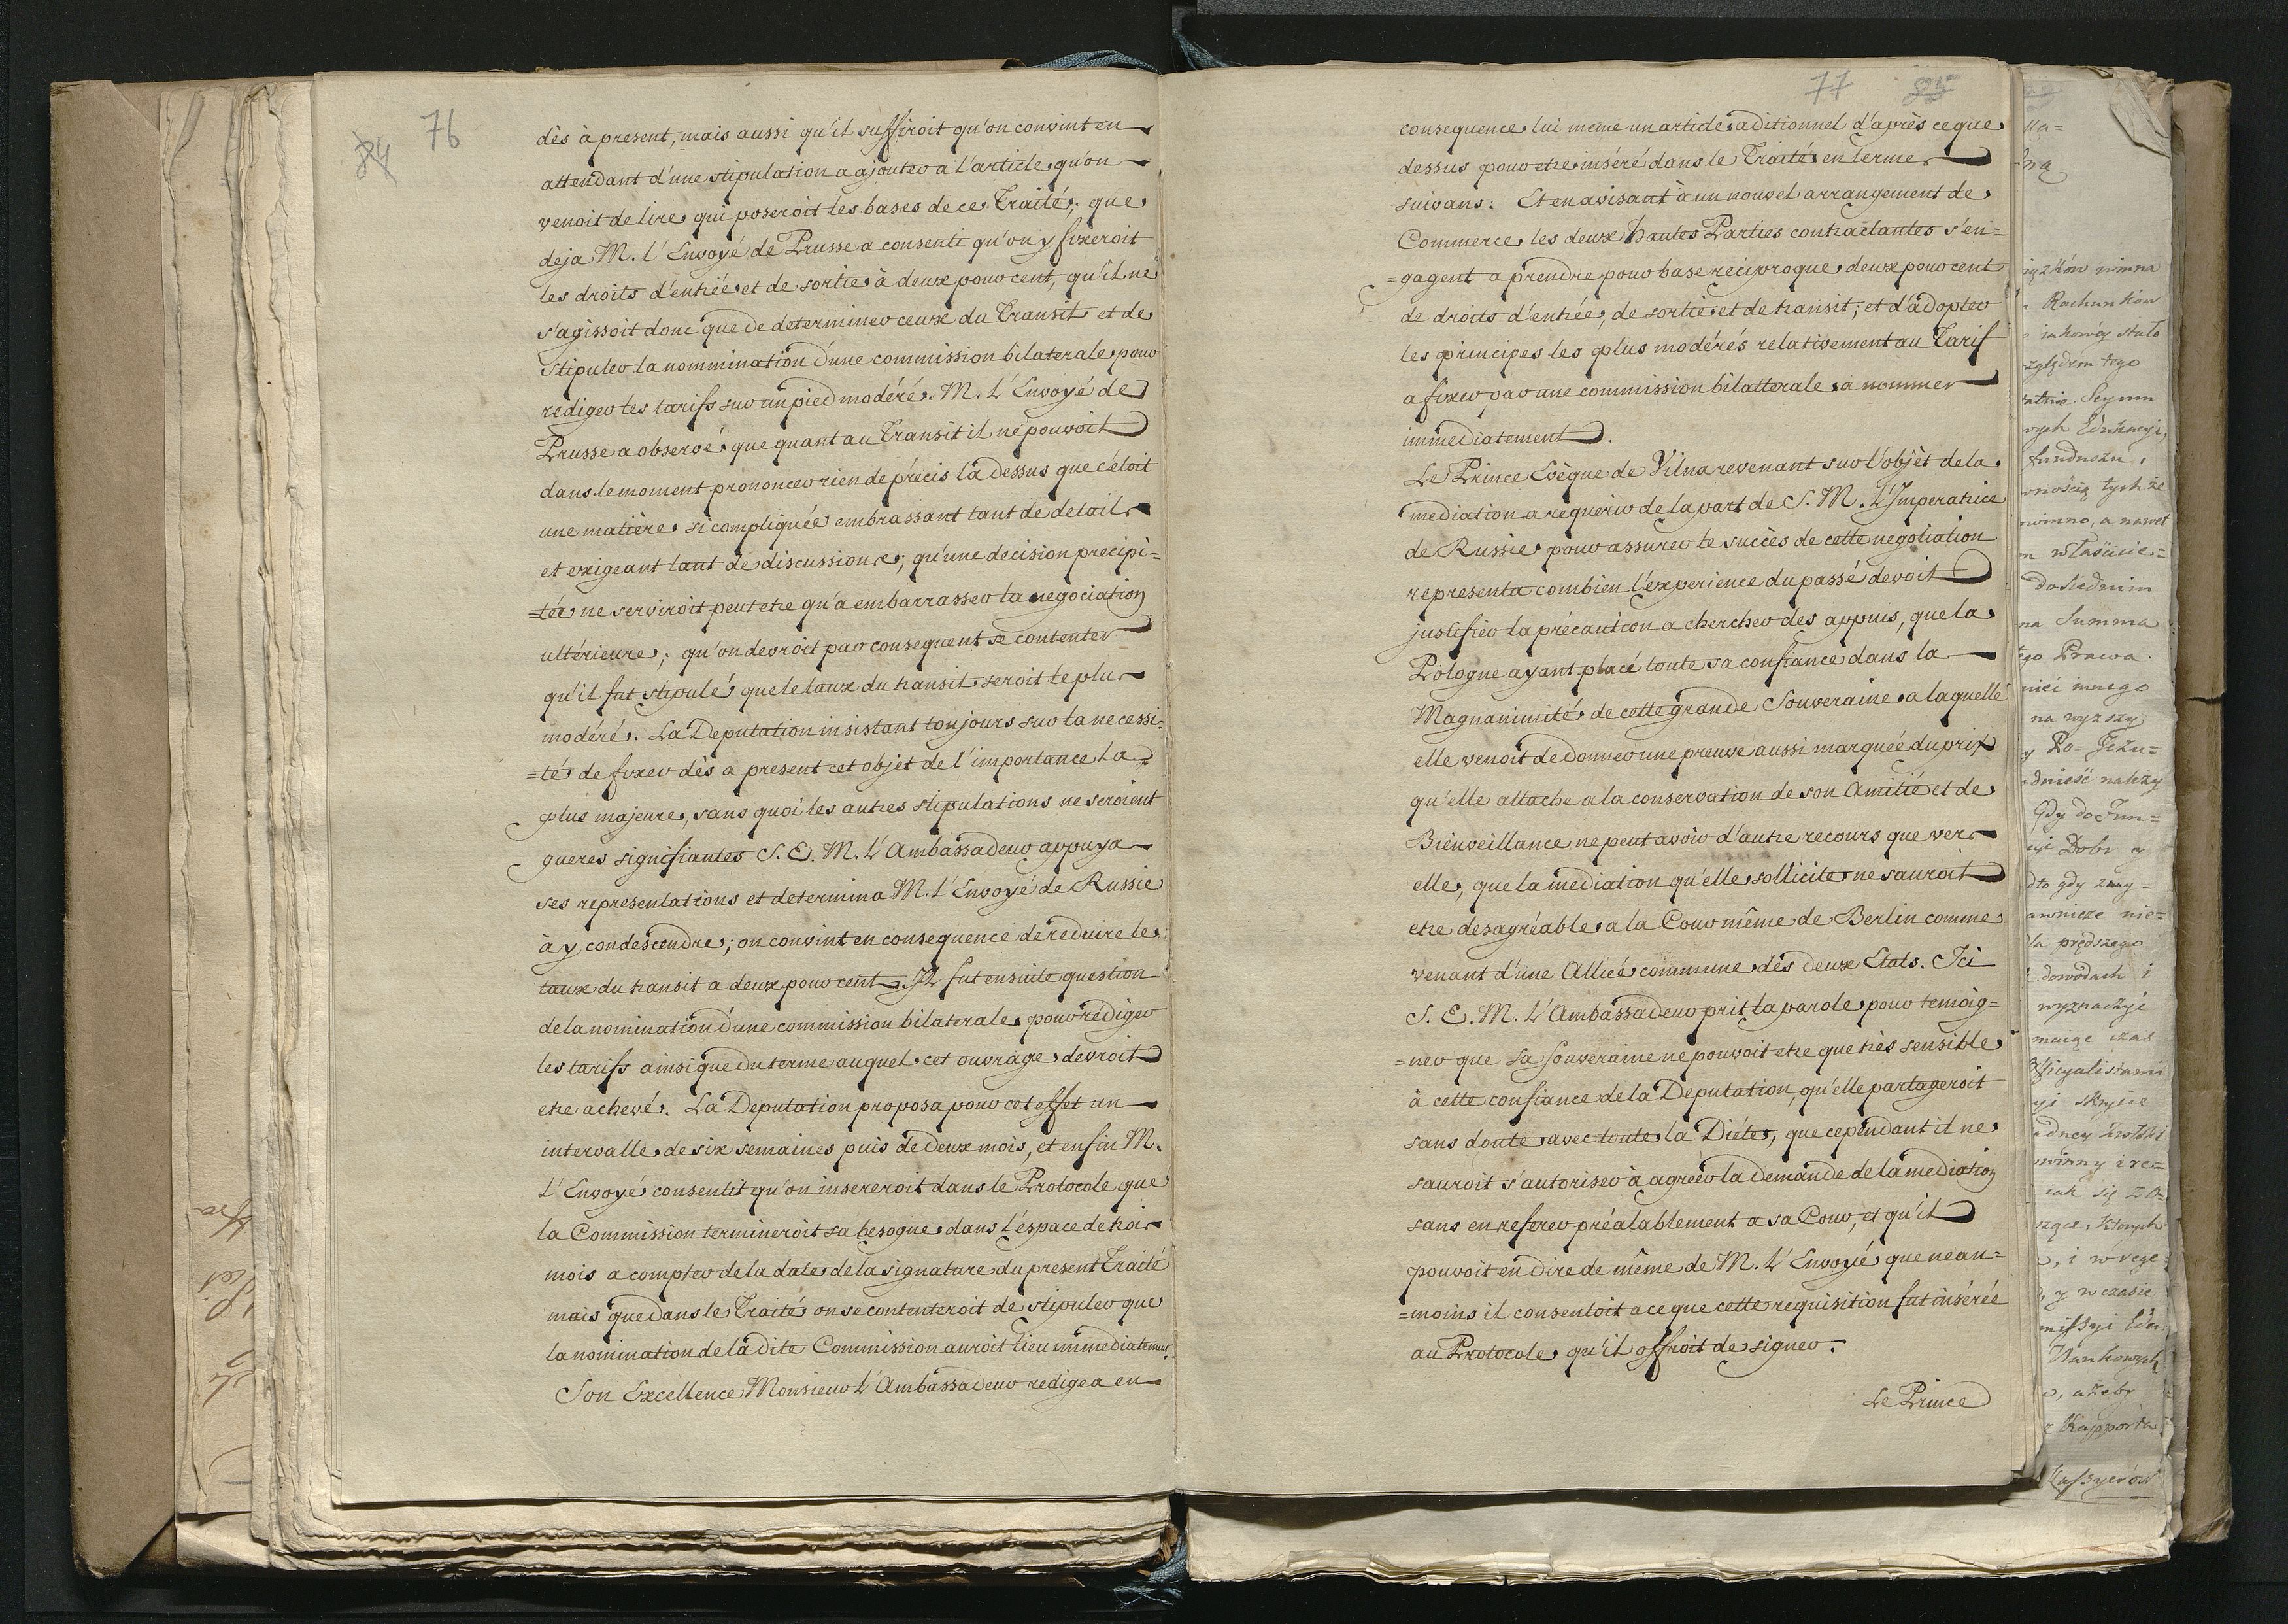 84 76
dès à present, mais aussi qu'il suffiroit qu'on convint en
attendant d'une stipulation a ajouter a l'article qu'on
venoit de lire qui poseroit les bases de ce Traité; que
deja M. l'Envoyé de Prusse a consenti qu'on y fixeroit
les droits d'entrée et de sortie à deux pour cent, qu'il ne
s'agissoit donc que de determiner ceux du Transit et de
stipuler la nommination d'une commission bilaterale pour
rediger les tarifs sur un pied modéré. M. L'Envoyé de
Prusse a observé que quant au Transit il ne pouvoit
dans le moment prononcer rien de précis la dessus que c'étoit
une matière si compliquée embrassant tant de details
et exigeant tant de discussions; qu'une decision precipi=
=tée ne serviroit peut etre qu'a embarrasser la negociation
ultérieure; qu'on devroit par consequent se contenter
qu'il fut stipulé que le taux du transit seroit le plus
modéré. La Deputation insistant toujours sur la necessi=
=té de fixer dès a present cet objet de l'importance la
plus majeure, sans quoi les autres stipulations ne seroient
gueres signifiantes S. E. M. L'Ambassadeur appuya
ses representations et determina M. L'Envoyé de Russie
à y condescendre; on convint en consequence de reduire le
taux du transit a deux pour cent. Il fut ensuite question
de la nomination d'une commission bilaterale pour rédiger
les tarifs ainsi que du terme auquel cet ouvrage devroit
etre achevé. La Deputation proposa pour cet effet un
intervalle de six semaines puis de deux mois, et enfin M.
L'Envoyé consentit qu'on insereroit dans le Protocole que
la Commission termineroit sa besogne dans l'espace de trois
mois a compter de la date de la signature du present Traité
mais que dans le Traité on se contenteroit de stipuler que
la nomination de la dite Commission auroit lieu immediatement.
Son Excellence Monsieur L'Ambassadeur redigea en
77 85
consequence lui meme un article aditionnel d'après ce que
dessus pour etre inséré dans le Traité en termes
suivans: Et en avisant à un nouvel arrangement de
Commerce les deux Hautes Parties contractantes s'en=
=gagent a prendre pour base reciproque deux pour cent
de droits d'entrée, de sortie et de transit; et d'adopter
les principes les plus modérés relativement au Tarif
a fixer par une commission bilatterale a nommer
immediatement.
Le Prince Evêque de Vilna revenant sur l'objèt de la
mediation a requerir de la part de S. M. L'Imperatrice
de Russie pour assurer le succès de cette negotiation
representa combien l'experience du passé devoit
justifier la précaution a chercher des appuis, que la
Pologne ayant placé toute sa confiance dans la
Magnanimité de cette grande Souveraine a laquelle
elle venoit de donner une preuve aussi marquée du prix
qu'elle attache a la conservation de son Amitié et de
Bienveillance ne peut avoir d'autre recours que vers
elle, que la mediation qu'elle sollicite ne sauroit
etre désagréable a la Cour même de Berlin comme
venant d'une Alliée commune des deux Etats. Ici
S. E. M. L'Ambassadeur prit la parole pour temoig=
=ner que sa Souveraine ne pouvoit etre que très sensible
à cette confiance de la Deputation, qu'elle partageroit
sans doute avec toute la Diéte, que cependant il ne
sauroit s'autoriser à agréer la demande de la mediation
sans en referer préalablement a sa Cour, et qu'il
pouvoit en dire de même de M. L'Envoyé que nean=
=moins il consentoit a ce que cette requisition fut insérée
au Protocole qu'il offroit de signer.
Le Prince
Rachunków
względem tego
Seymu
Funduszu,
wnością tych że
winno, a nawet
na Summa
ego Prawa.
na wyższy
dnieść należy
Gdy do Fun=
la prędszego
dowodach i
wyznaczyć
iak się zo=
y w czasie
Kassyerów